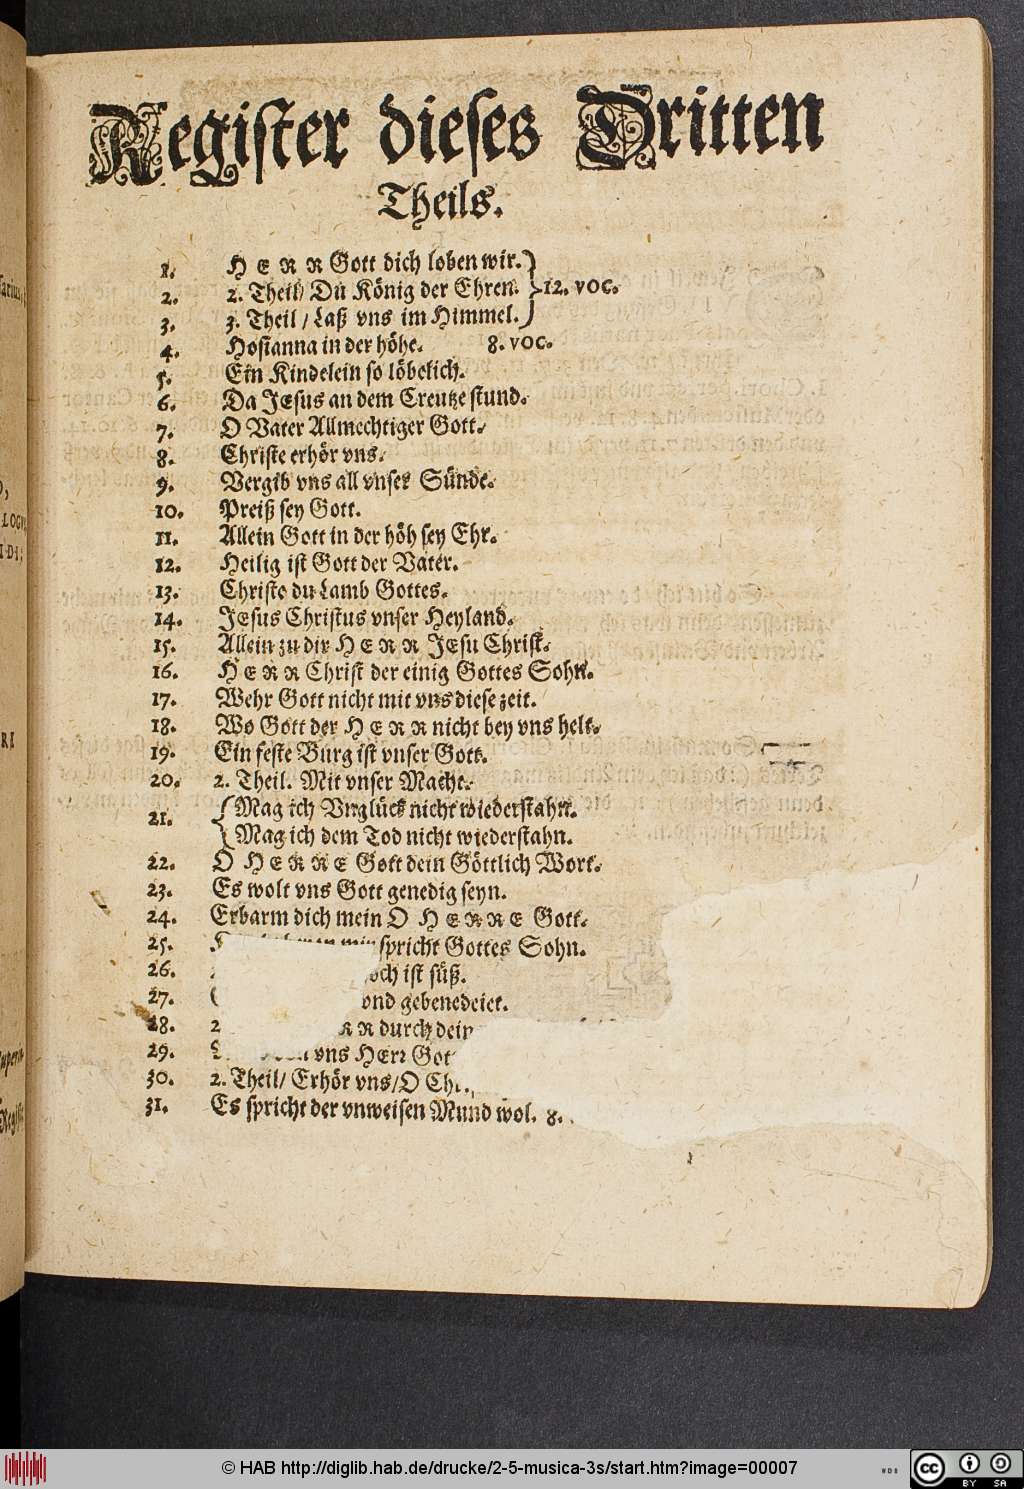 Register dieses Dritten
Theils.
1. HERR Gott dich loben wir.
2. 2. Theil/ Du König der Ehren. 12. voc.
3. 3. Theil / Laß vns im Himmel.
4. Hosianna in der höhe. 8. voc.
5. Ein Kindelein so löbelich.
6. Da JEsus an dem Creutze stund.
7. O Vater Allmechtiger Gott.
8. Christe erhör vns.
9. Vergib vns all vnser Sünde.
10. Preiß sey Gott.
11. Allein Gott in der höh sey Ehr.
12. Heilig ist Gott der Vater.
13. Christe du Lamb Gottes.
14. JEsus Christus vnser Heyland.
15. Allein zu dir HERR JEsu Christ.
16. HERR Christ der einig Gottes Sohn.
17. Wehr Gott nicht mit vns diese zeit.
18. Wo Gott der HERR nicht bey vns helt.
19. Ein feste Burg ist vnser Gott.
20. 2. Theil. Mit vnser Macht.
21. Mag ich Vnglück nicht wiederstahn.
Mag ich dem Tod nicht wiederstahn.
22. O HERRE Gott dein Göttlich Wort.
23. Es wolt vns Gott genedig seyn.
24. Erbarm dich mein O HERRE Gott.
25. spricht Gottes Sohn.
26. ist süß.
27. vnd gebenedeiet.
28. 2 durch dein
29. vns HErr Got
30. 2. Theil/ Erhör vns/O Ch
31. Es spricht der vnweisen Mund wol. 8.
LOGV
IDI;
RI
© HAB http://diglib.hab.de/drucke/2-5-musica-3s/start.htm?image=00007
WDB
cc
BY SA